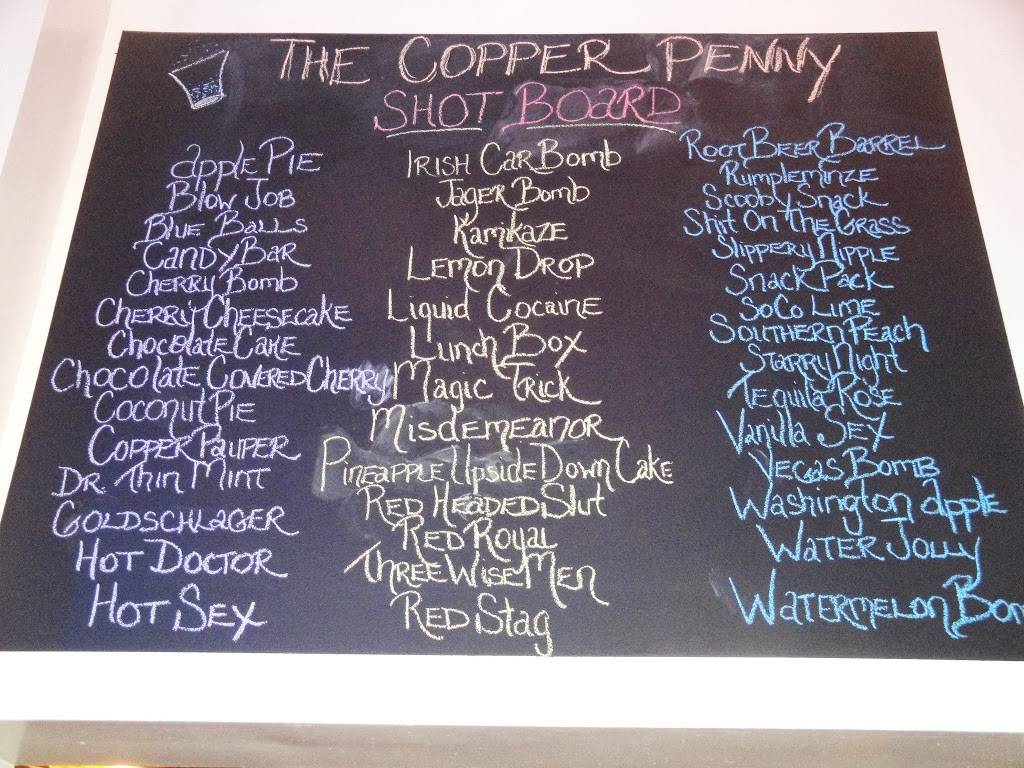 THE COPPER PENNY
SHOT BOARD
apple PIE
Blow JOB
Blue BALLS
CANDY BAR
CHERRY BOMB
CHERRY CHEESECAKE
CHOCOLATE CAKE
CHOCOLATE COVERED CHERRY
COCONUT PIE
COPPER PAUPER
DR. THIN MINT
GOLDSCHLAGER
HOT DOCTOR
HOT SEX
IRISH CAR BOMB
JÄGER BOMB
KAMIKAZE
LEMON DROP
LIQUID COCAINE
LUNCH BOX
MAGIC TRICK
MISDEMEANOR
PINEAPPLE UPSIDE DOWN CAKE
RED HEADED SLUT
RED ROYAL
THREE WISE MEN
RED STAG
ROOT BEER BARREL
RUMPLEMINZE
SCOOBY SNACK
SHIT ON THE GRASS
SLIPPERY NIPPLE
SNACK PACK
SOCO LIME
SOUTHERN PEACH
STARRY NIGHT
TEQUILA ROSE
VANILLA SEX
VEGAS BOMB
WASHINGTON apple
WATER JOLLY
WATERMELON BOM